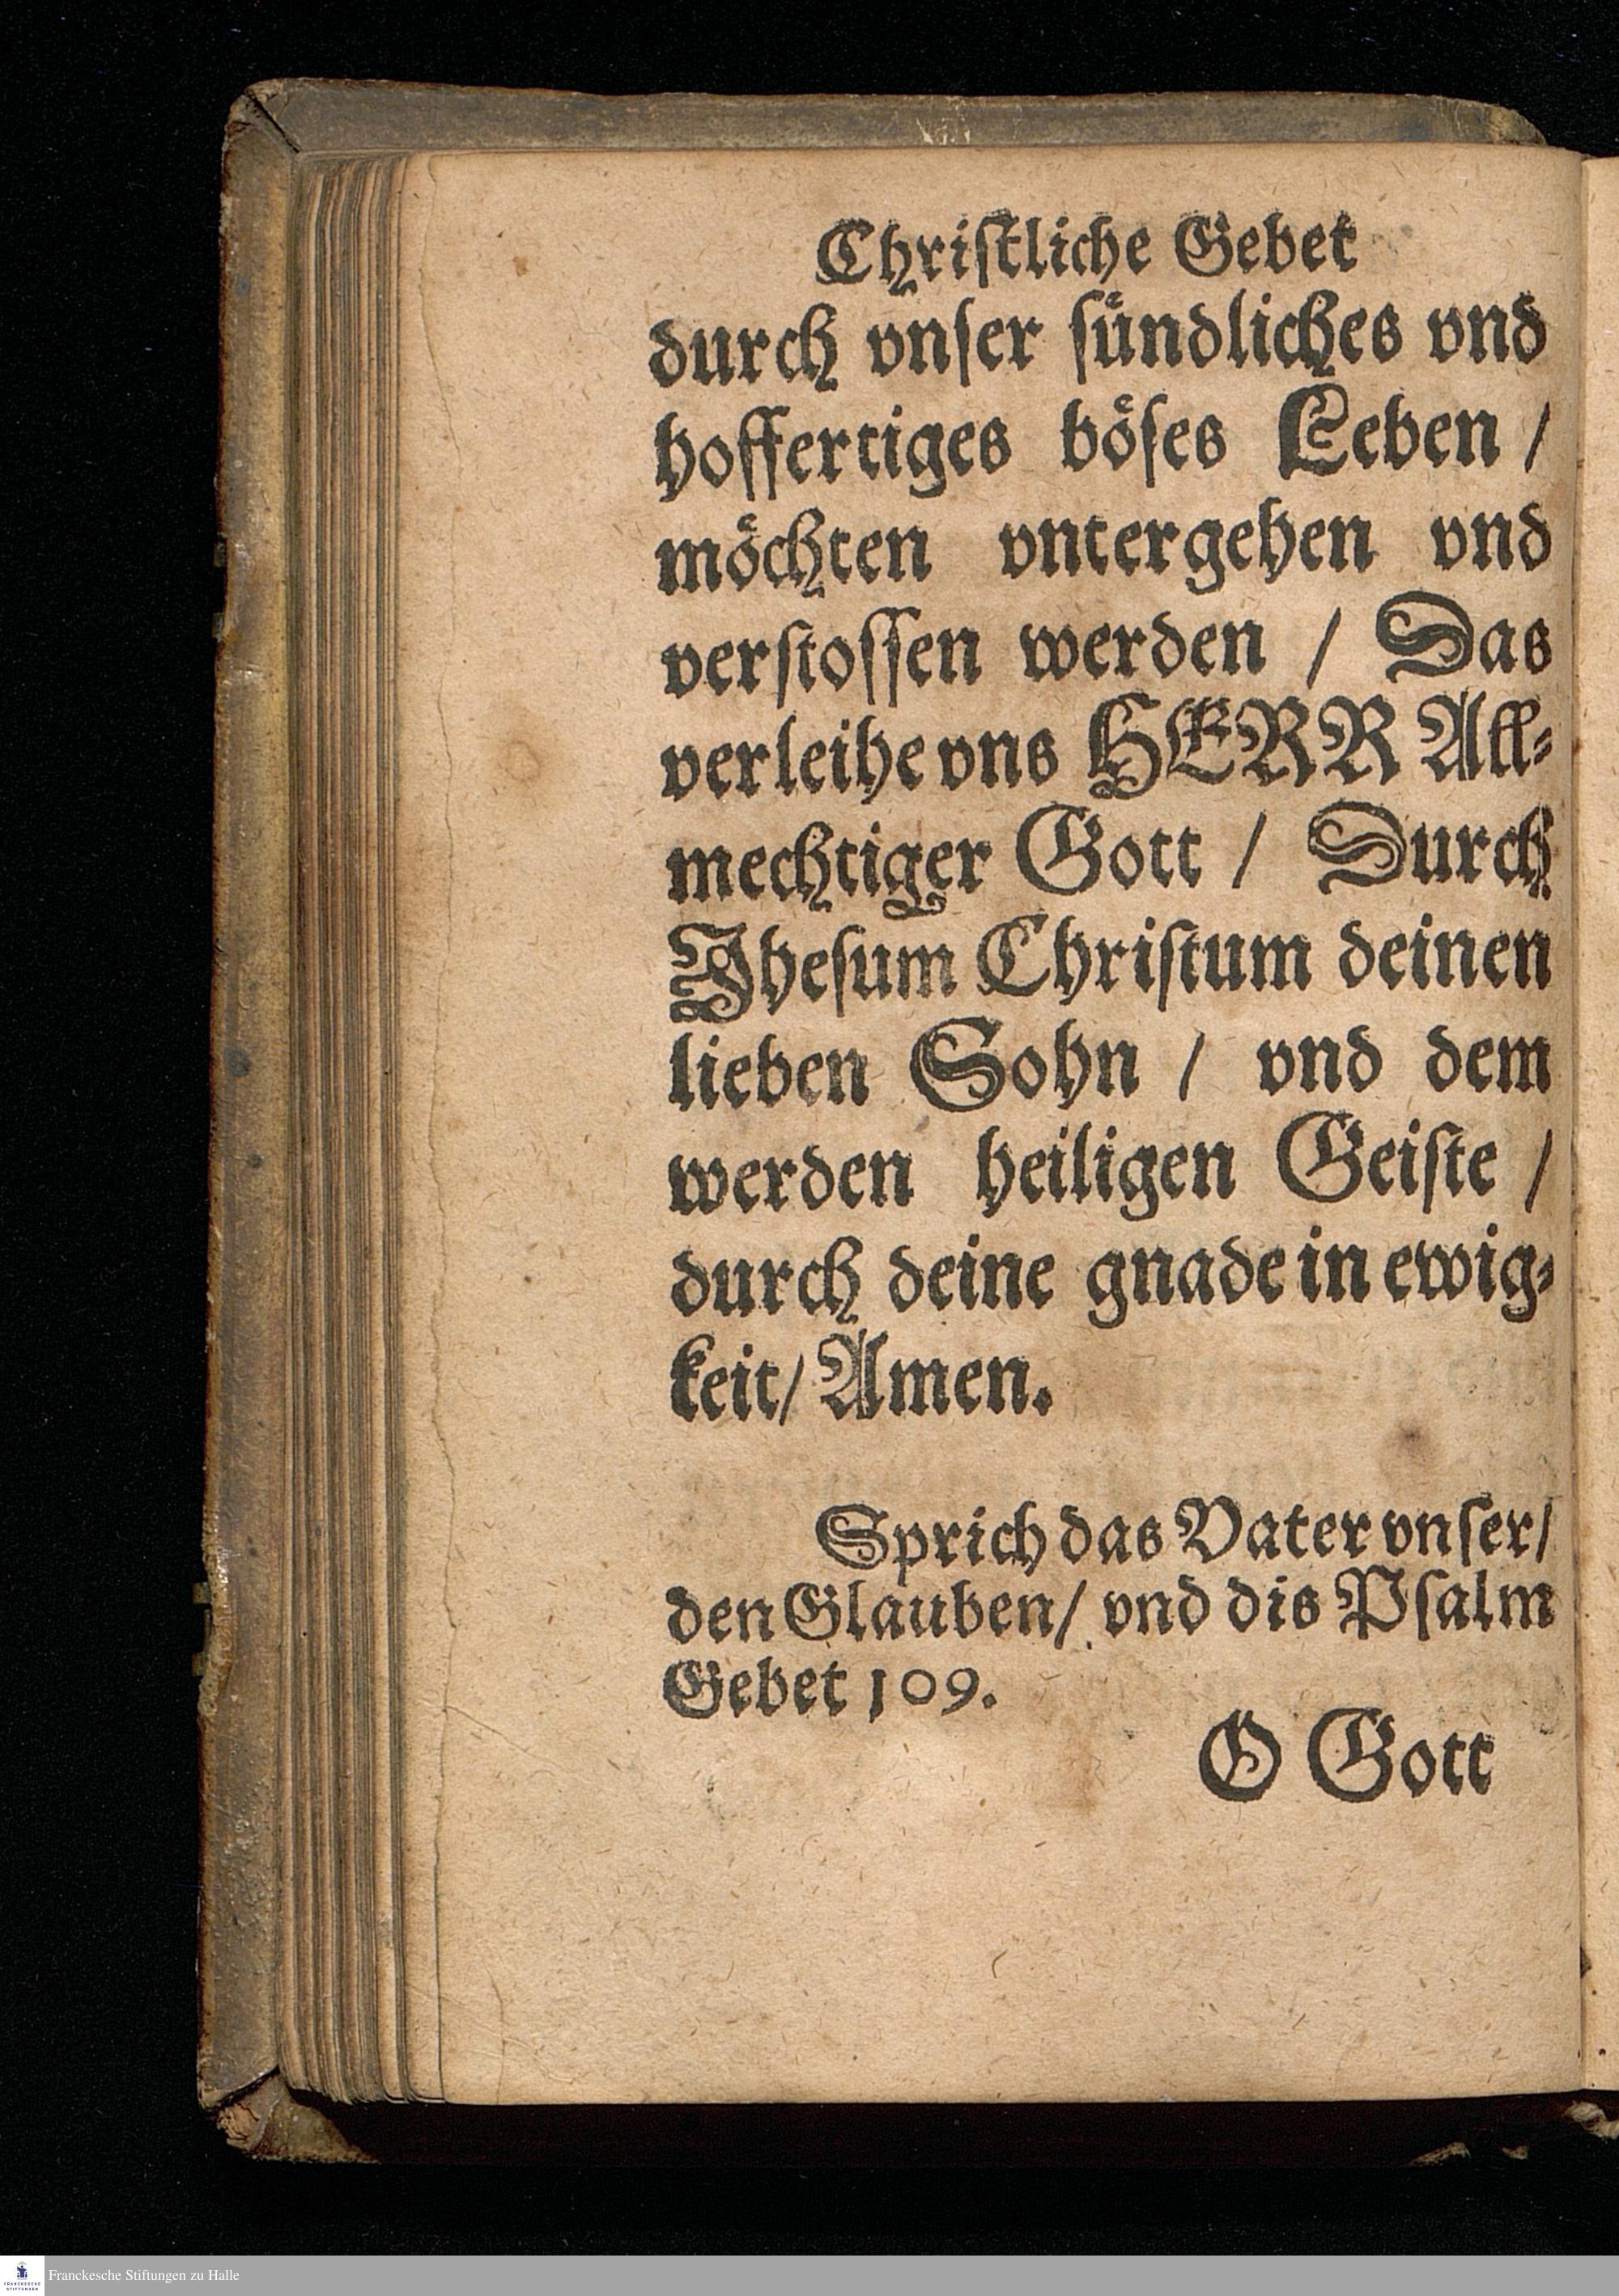 Christliche Gebet
durch vnser sündliches vnd
hoffertiges böses Leben /
möchten vntergehen vnd
verstossen werden / Das
verleihe vns HERR All-
mechtiger Gott / Durch
Jhesum Christum deinen
lieben Sohn / vnd dem
werden heiligen Geiste /
durch deine gnade in ewig-
keit / Amen.
Sprich das Vater vnser /
den Glauben / vnd dis Psalm
Gebet 109.
O Gott
FRANCKESCHE STIFTUNGEN
Franckesche Stiftungen zu Halle